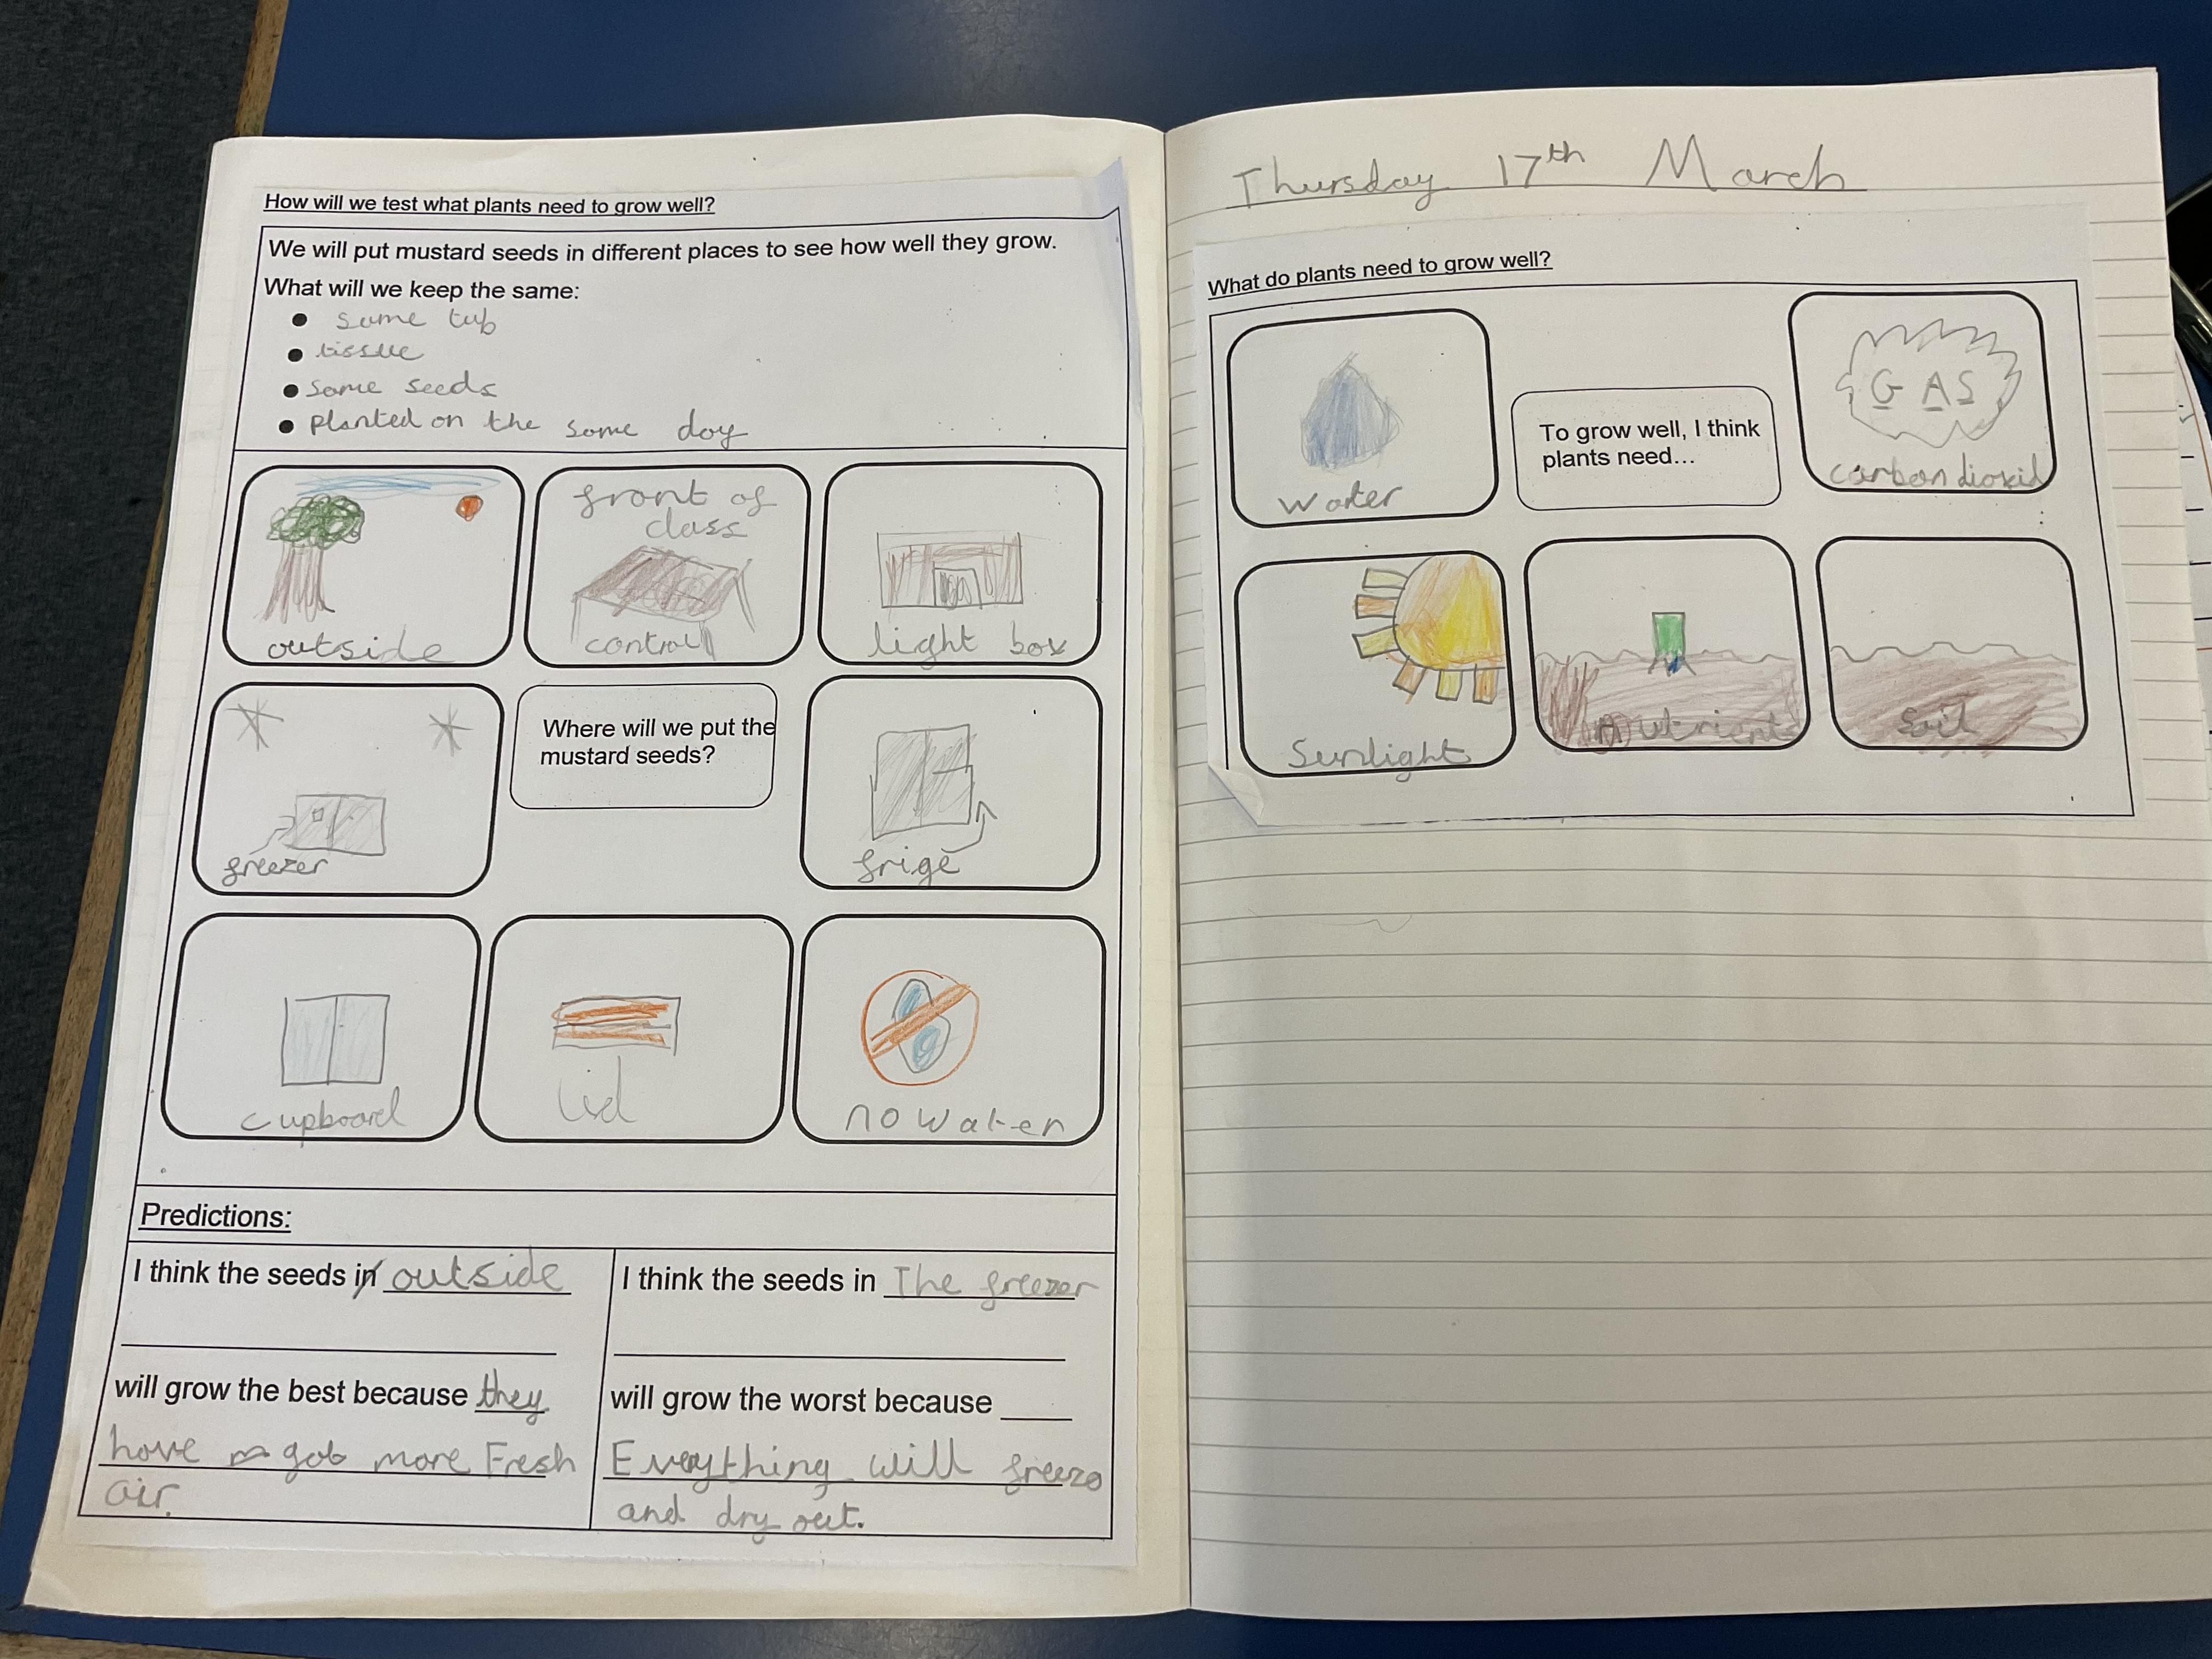 How will we test what plants need to grow well?
We will put mustard seeds in different places to see how well they grow.
What will we keep the same:
● same tub
● tissue
● same seeds
● planted on the same day
outside
front of
class
controll
light box
freezer
Where will we put the
mustard seeds?
frige
cupboard
lid
no water
Predictions:
I think the seeds in outside
will grow the best because they
have got more Fresh
air.
I think the seeds in The freezer
will grow the worst because
Everything will freeze
and dry out.
Thursday 17th March
What do plants need to grow well?
water
To grow well, I think
plants need...
GAS
carbon dioxid
Sunlight
nutrients
Soil